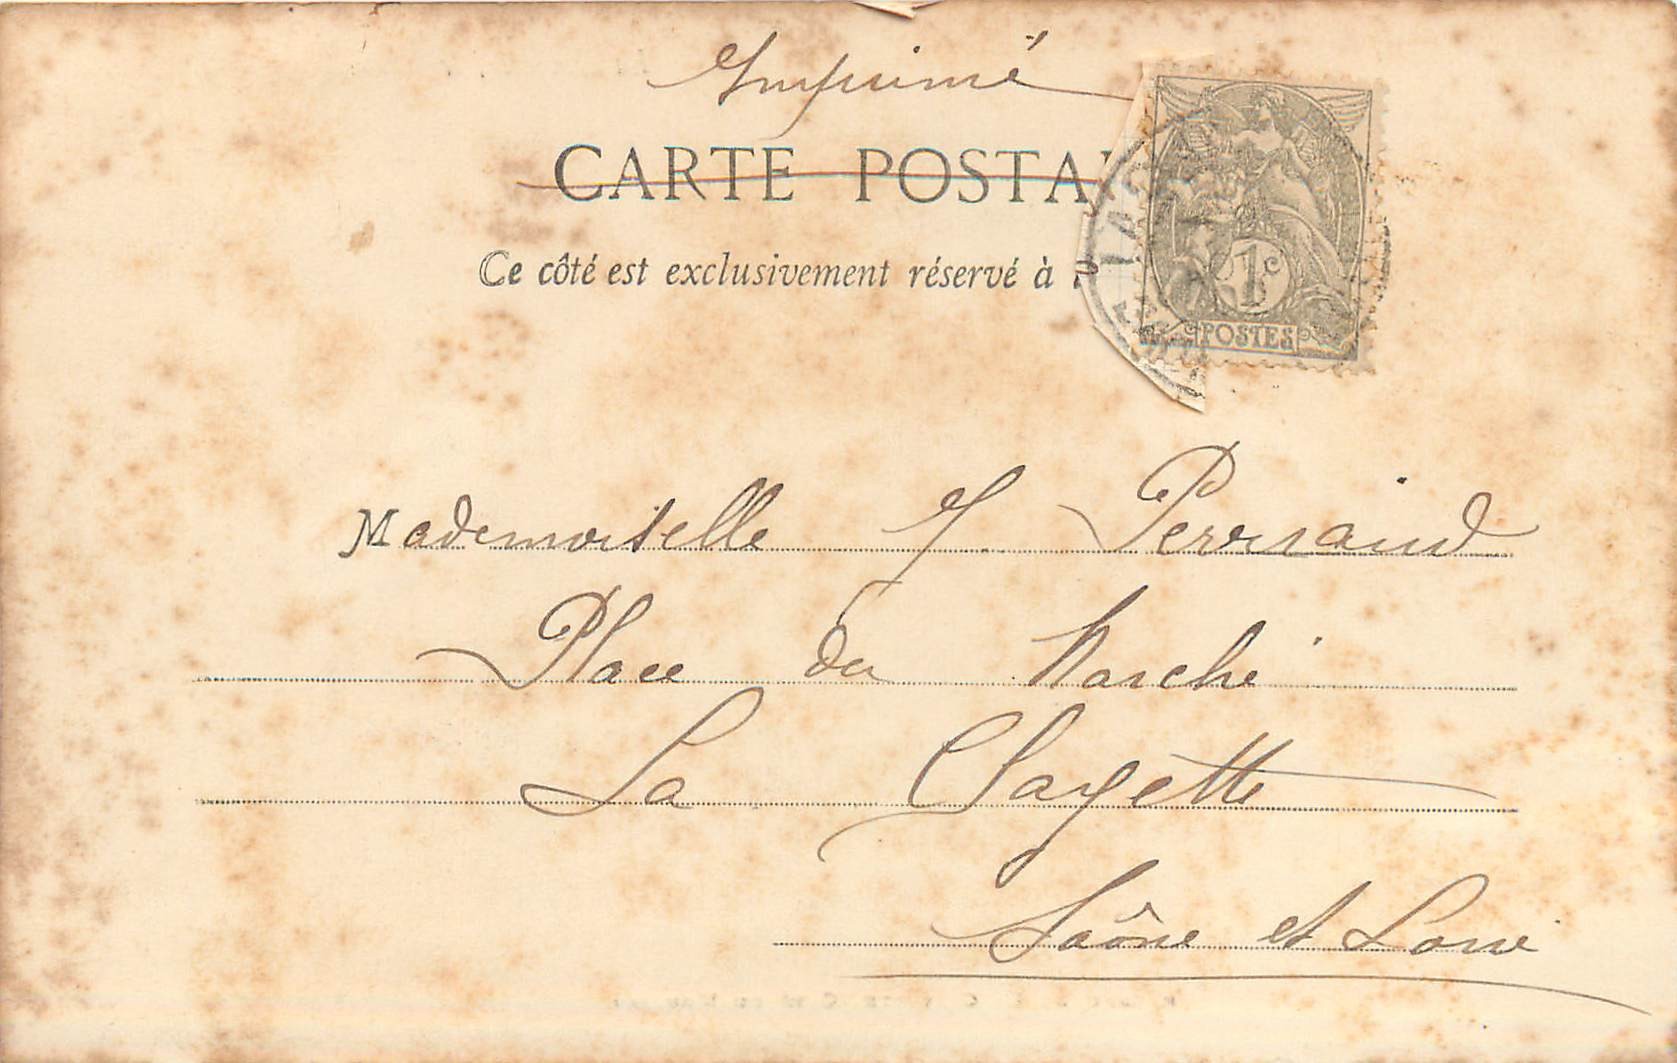 Imprimé
CARTE POSTA
Ce côté est exclusivement réservé à
1c
POSTES
Mademoiselle J. Perrraud
Place du Marché
La Clayette
Saône et Loire